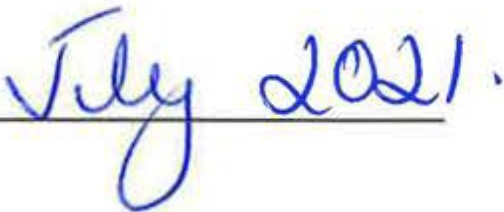 July 2021.